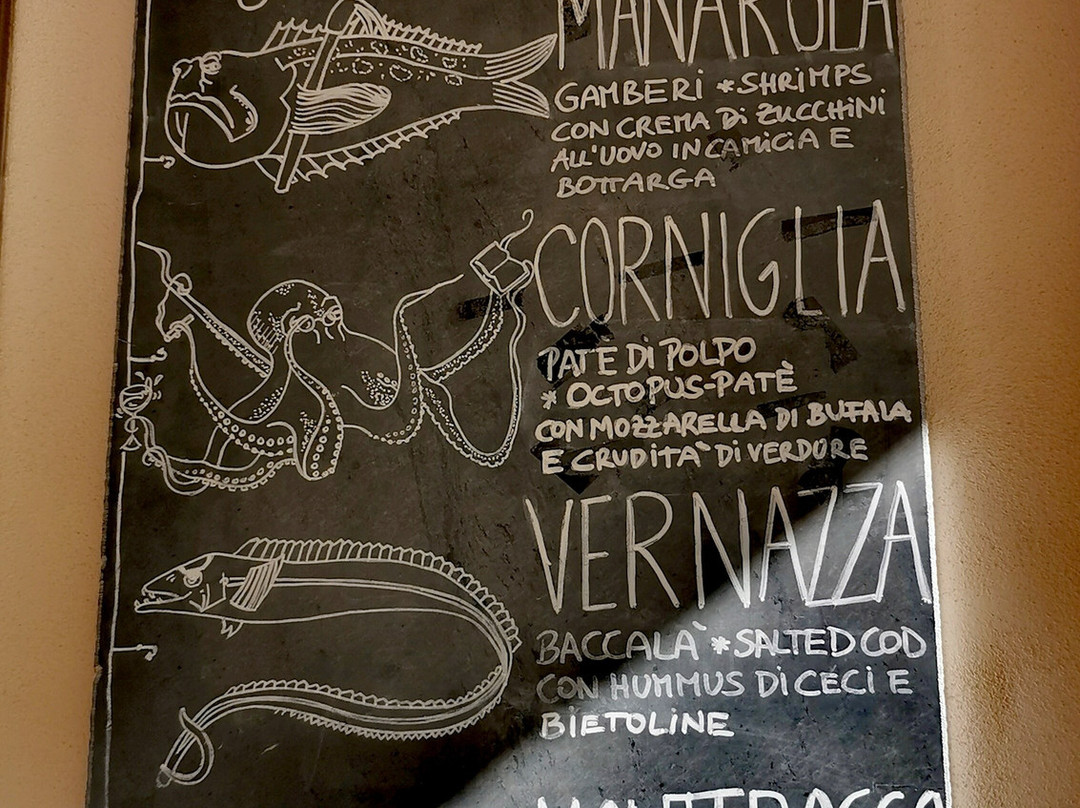 MANAROLA
GAMBERI *SHRIMPS
CON CREMA DI ZUCCHINI
ALL'UOVO IN CAMICIA E
BOTTARGA
CORNIGLIA
PATE DI POLPO
* OCTOPUS-PATÈ
CON MOZZARELLA DI BUFALA
E CRUDITÀ DI VERDURE
VERNAZZA
BACCALÀ *SALTED COD
CON HUMMUS DI CECI E
BIETOLINE